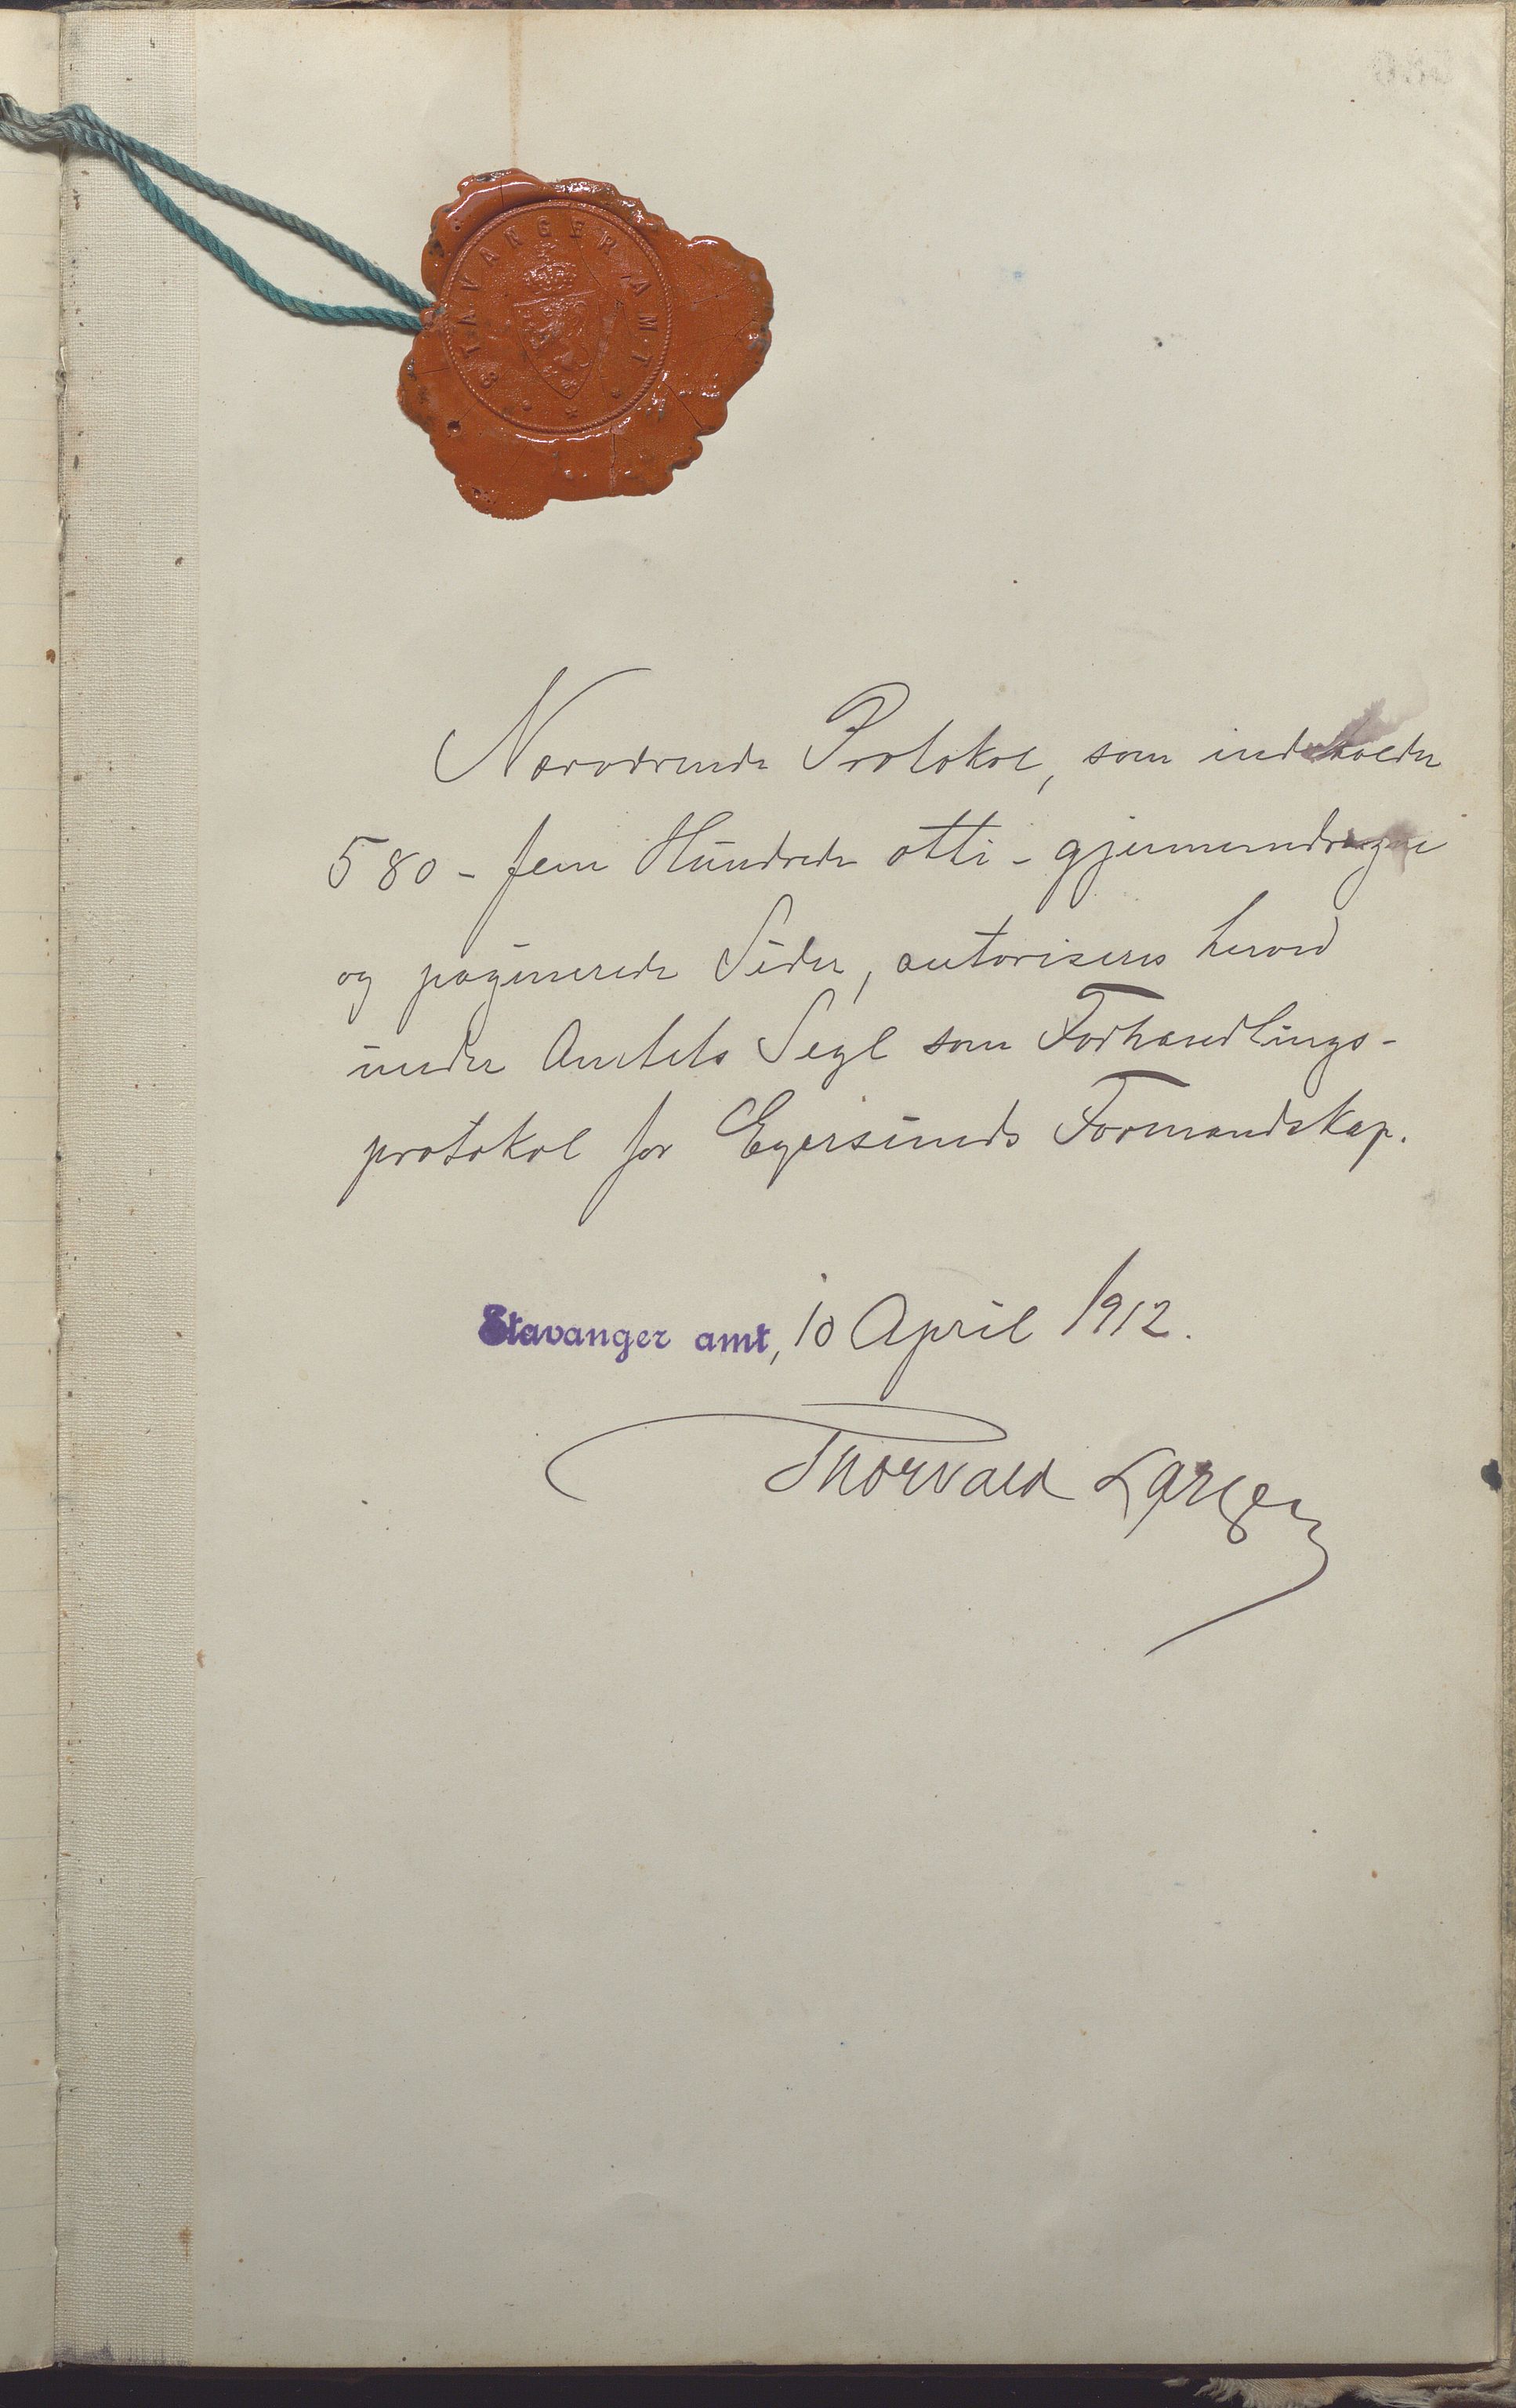 STAVANGER AMT
Nærværende Protokol, som indeholder
580 - fem Hundrede otti - gjennemdragne
og paginerede Sider, autoriseres herved
under Amtets Segl som Forhandlings-
protokol for Egersunds Formandskap.
Stavanger amt, 10 April 1912.
Thorvald Larsen